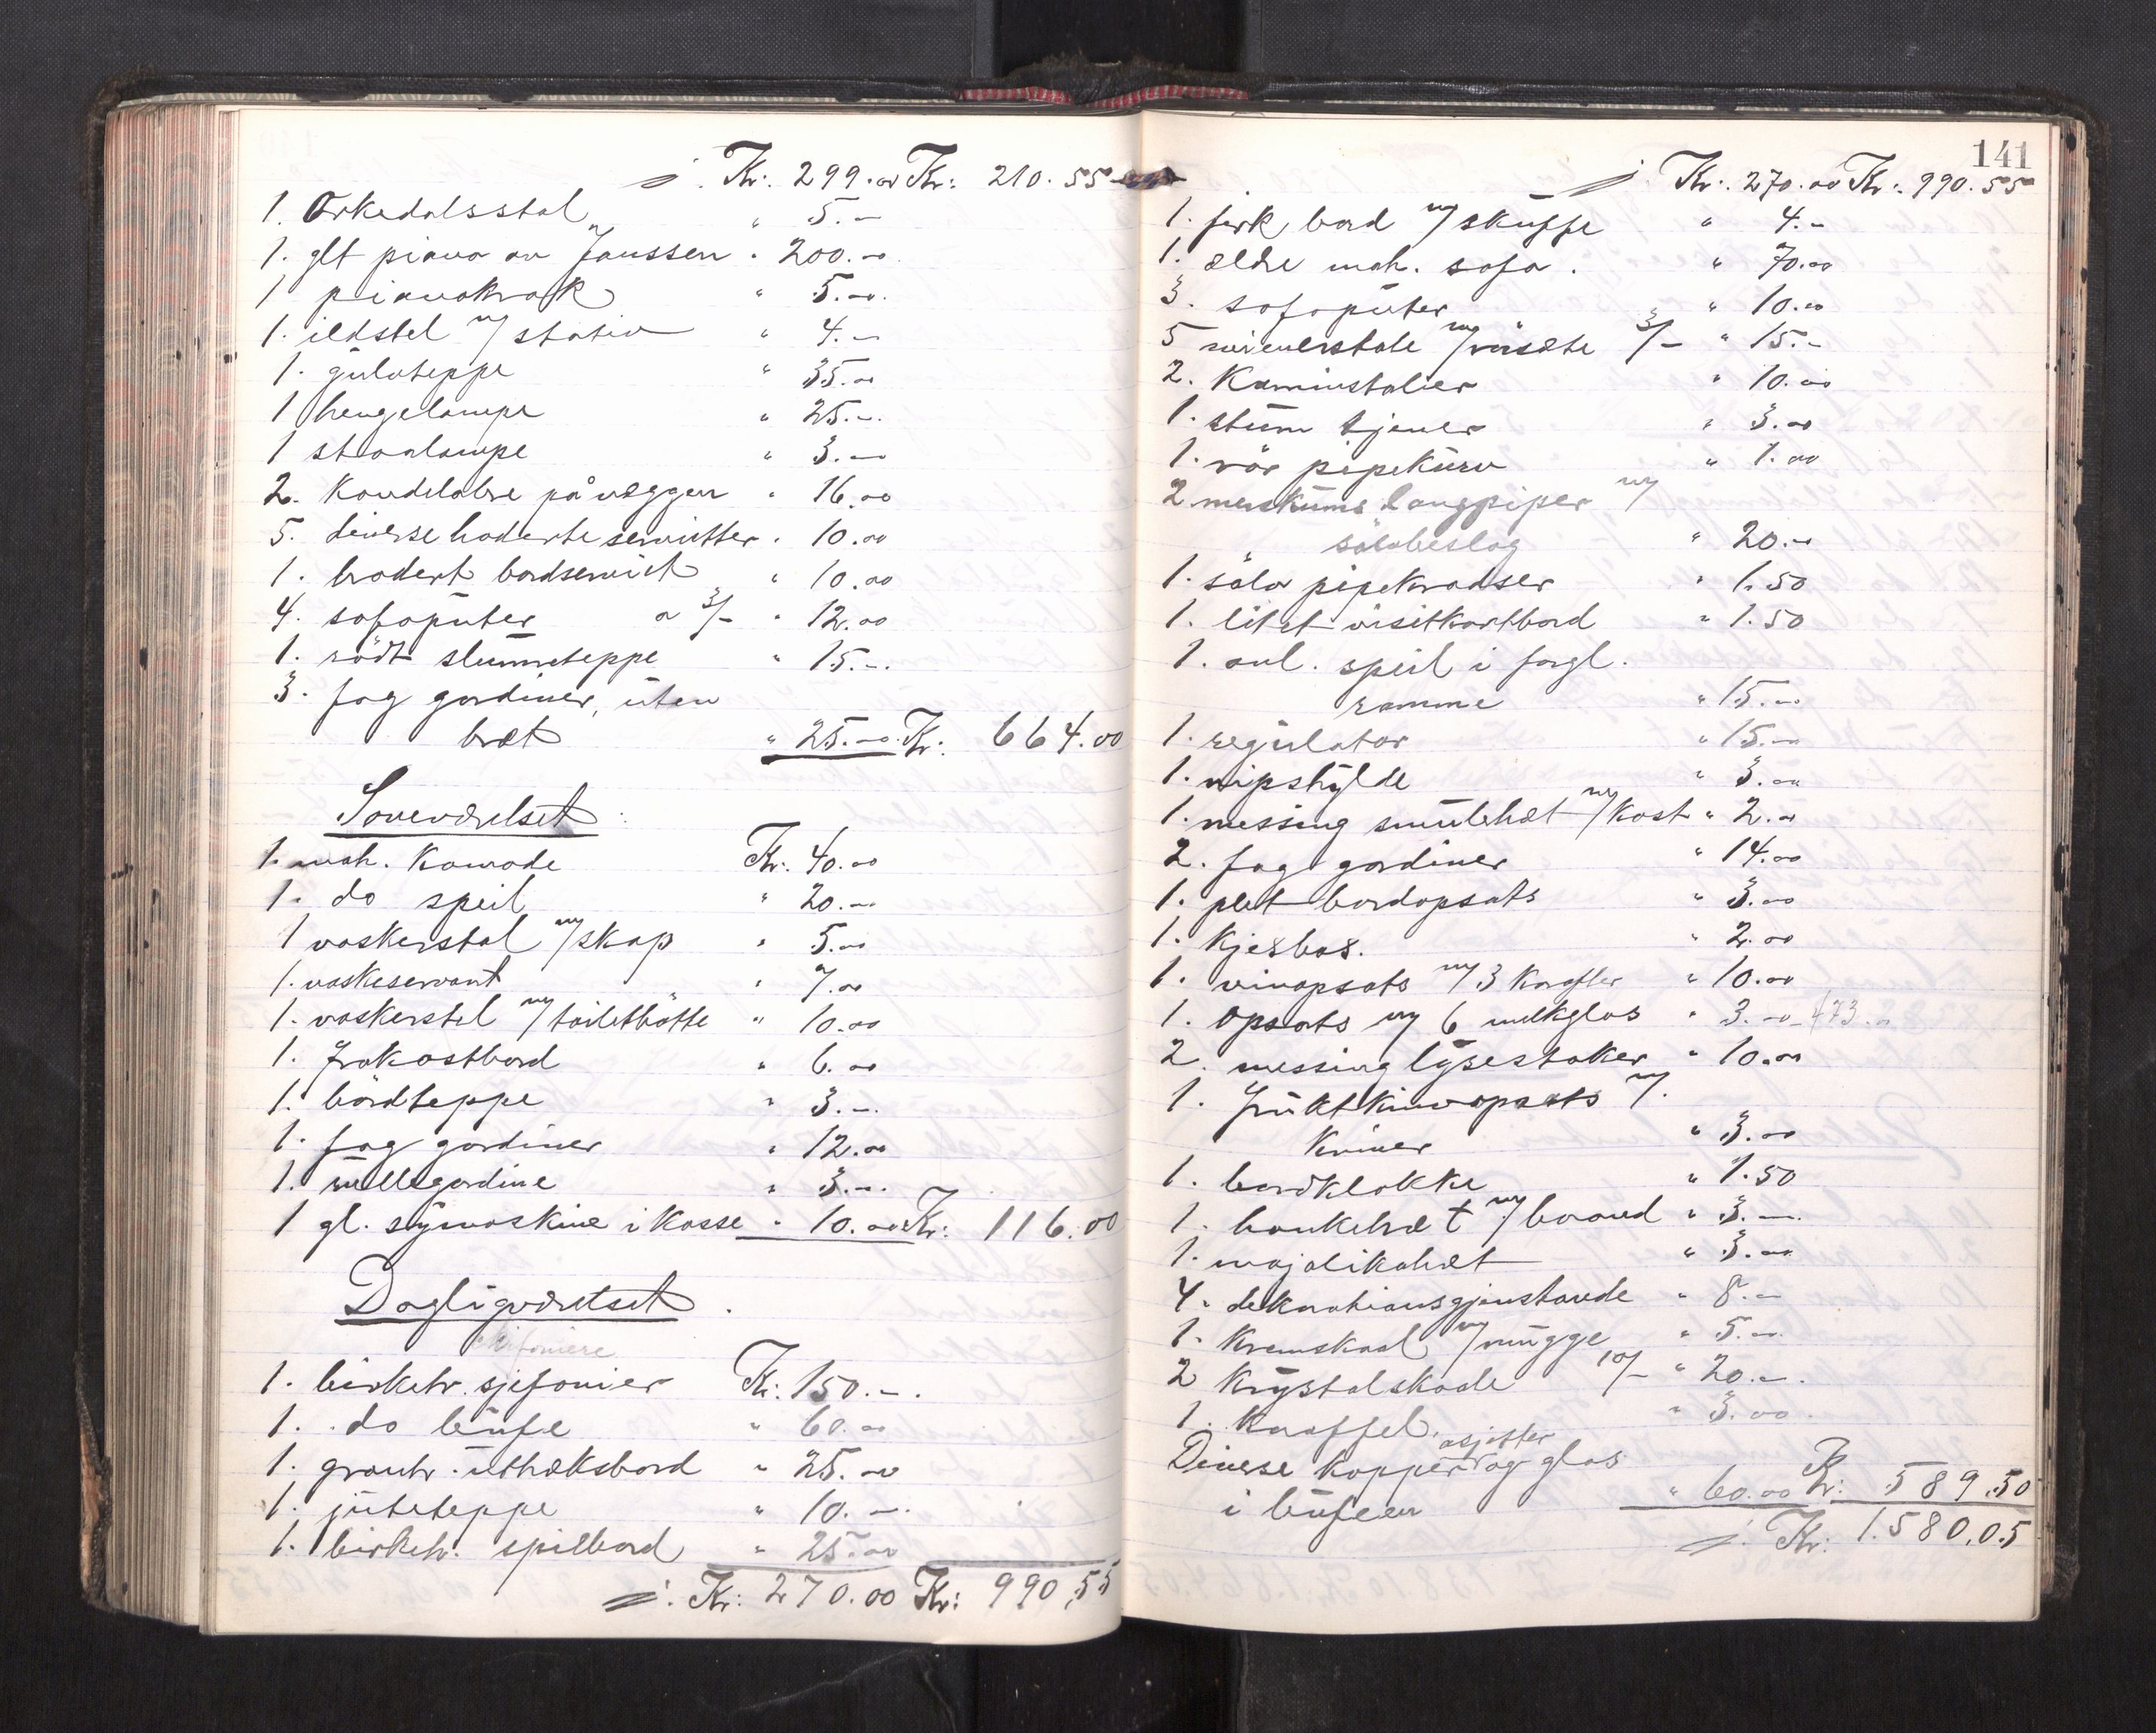 Kr: 299.00 Kr: 210.55
1. Orkedalsstol " 5.00
1. glt piano av Janssen " 200.00
1 pianokrak " 5.00
1. ildstel m/ stativ " 4.00
1. gulvteppe " 35.00
1 hengelampe " 25.00
1 stoalampe " 3.00
2. Kandelabre på veggen " 16.00
5. diverse broderte servietter " 10.00
1. brodert bordserviet " 10.00
4. sofaputer a 3/- " 12.00
1. rødt slumreteppe " 15.00
3. fag gardiner, uten
bret " 25.00 Kr: 664.00
Soveværelset:
1. mah. Komode Kr: 40.00
1. do speil " 20.00
1 vaskerstol m/skap " 5.00
1. vaskeservant " 7.00
1. vaskerstel m/ toiletbøtte " 10.00
1. frokostbord " 6.00
1. bordteppe " 3.00
1. fag gardiner " 12.00
1. rullegardine " 3.00
1 gl. symaskine i kasse " 10.00 Kr: 116.00
Dagligværelset.
chifoniere
1. birketr. sjefonier Kr: 150.00
1. do bufe " 60.00
1. grantr. uttreksbord " 25.00
1. juteteppe " 10.00
1. birketr. spilbord " 25.00
Kr: 270.00 Kr: 990.55
141
Kr: 270.00 Kr: 990.55
1. firk. bord m/ skuffe " 4.00
1. eldre mah. sofa. " 70.00
3. sofaputer " 10.00
5 wienerstole m/ rørsete 3/- " 15.00
2. Kaminstolier " 10.00
1. stum tjener " 3.00
1. rør pipekurv " 1.00
2 merskums langpiper m/
sølvbeslag " 20.00
1. sølv pipekradser " 1.50
1. litet visitkortbord " 1.50
1. avl. speil i forgl.
ramme " 15.00
1. regulator " 15.00
1. nipshylde " 3.00
1. messing smulebret m/ kost " 2.00
2. fag gardiner " 14.00
1. plet bordopsats " 3.00
1. Kjeksbox. " 2.00
1. vinopsats m/ 3 karafler " 10.00
1. Opsats m/ 6 melkglas " 3.00 473.00
2. messing lysestaker " 10.00
1. fruktknivopsats m/.
kniver " 3.00
1. bordklokke " 1.50
1. bankebret m/ bord " 3.00
1. majolikabret " 3.00
4. dekorationsgjenstande " 8.00
1. Kremskaal m/ mugge " 5.00
2 Krystalskaale 10/- " 20.00
1. Karaffel. " 3.00
asjetter
Diverse kopper og glas
i bufeen " 60.00 Kr: 589.50
Kr: 1.580.05